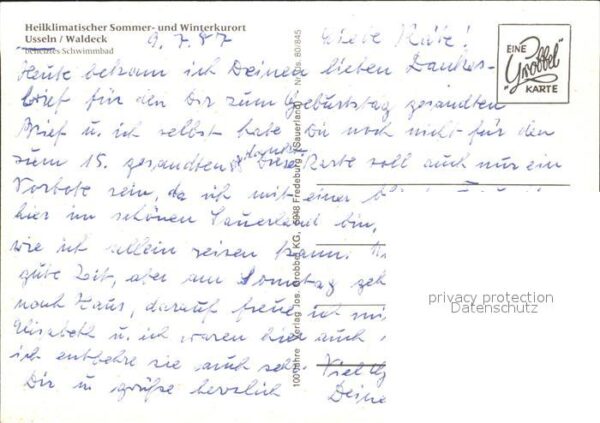 Heilklimatischer Sommer- und Winterkurort
Usseln / Waldeck
beheiztes Schwimmbad
9.7.87 Liebe Käte!
EINE
"Grobbel"
KARTE
Heute bekam ich Deinen lieben Dankes-
brief für den Dir zum Geburtstag gesandten
Brief u. ich selbst habe Dir noch nicht für den
zum 15. gesandten gedankt. Diese Karte soll auch nur ein
Vorbote sein, da ich mit einer
hier im schönen Sauerland bin,
wie ich allein reisen kann.
gute Zeit, aber am Sonntag geh
nach Haus, darauf freue ich mi
Elisabeth u. ich waren hier auch
ich entbehre sie auch seh Viel
Dir u. grüße herzlich Deine
100 Jahre Verlag Jos. Grobbel KG, 5948 Fredeburg (Sauerland) Nr. Us. 80/845
privacy protection
Datenschutz